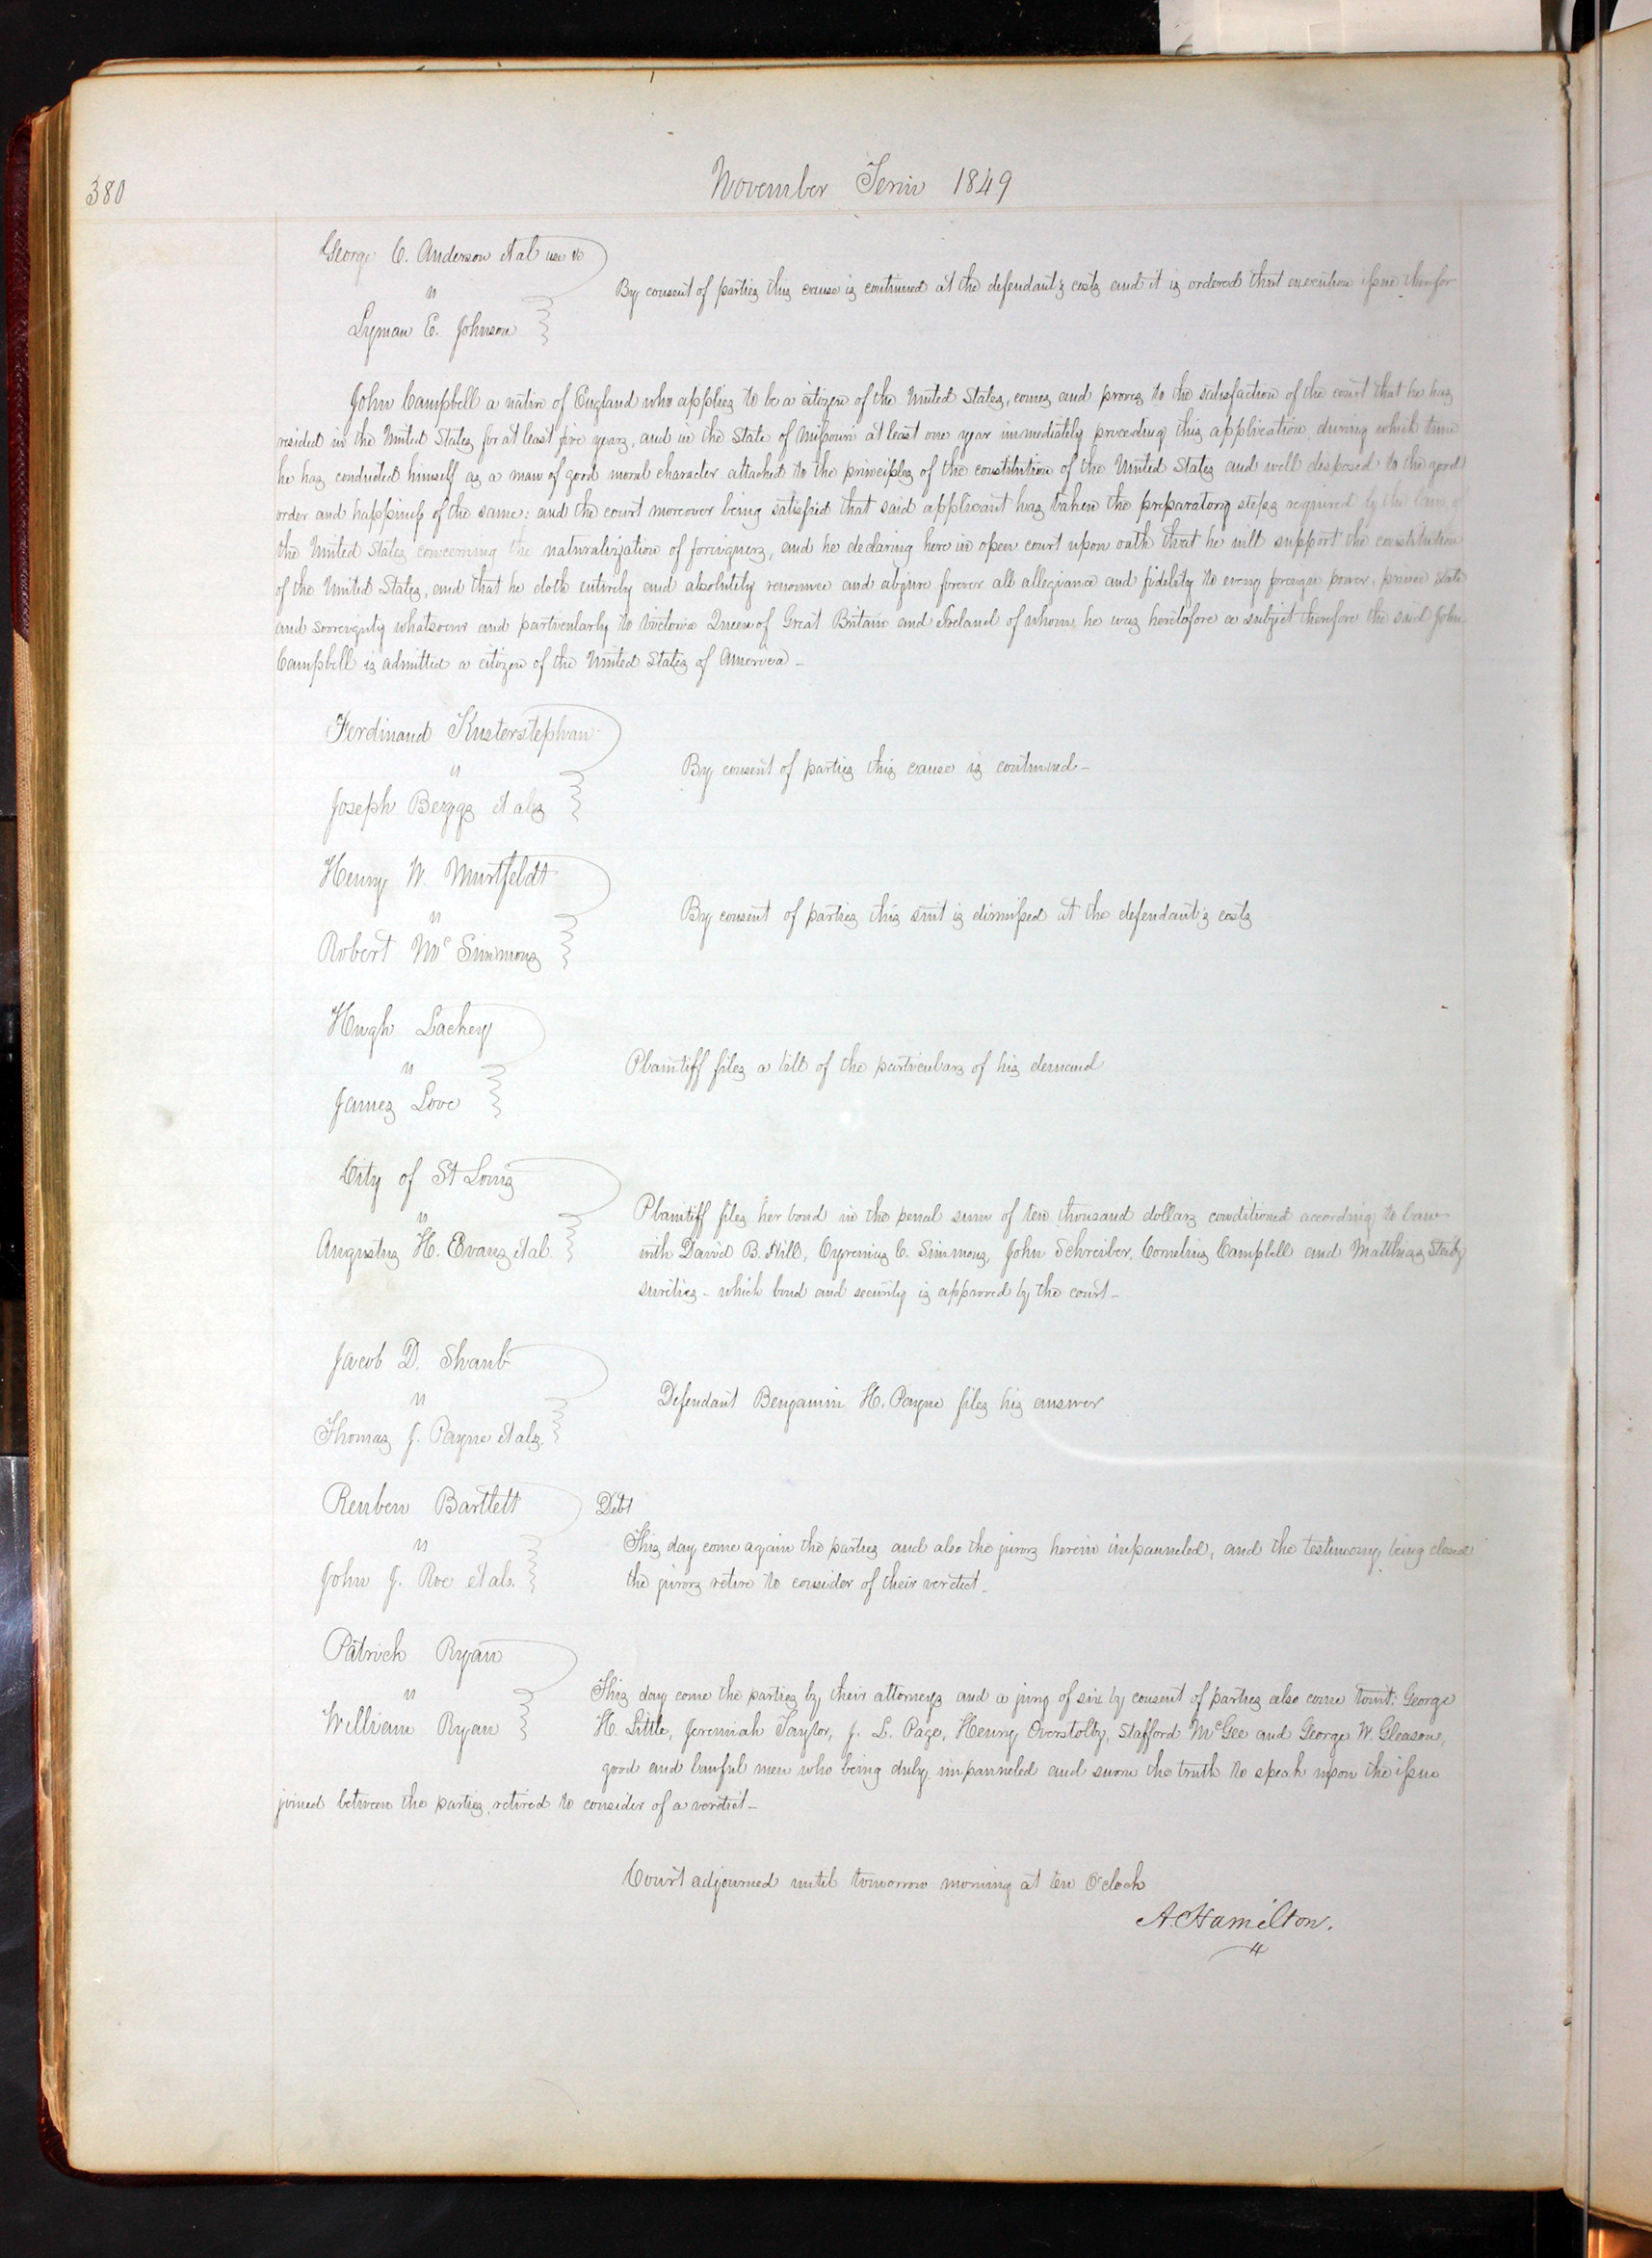 380
November Term 1849
George C. Anderson et al use &c
vs
Lyman E. Johnson
By consent of parties this cause is continued at the defendant's costs and it is ordered that execution issue therefor
John Campbell a native of England who applies to be a citizen of the United States, comes and proves to the satisfaction of the court that he has
resided in the United States for at least five years, and in the State of Missouri at least one year immediately preceding this application during which time
he has conducted himself as a man of good moral character attached to the principles of the constitution of the United States and well disposed to the good
order and happiness of the same: and the court moreover being satisfied that said applicant has taken the preparatory steps required by the laws of
the United States concerning the naturalization of foreigners, and he declaring here in open court upon oath that he will support the constitution
of the United States, and that he doth entirely and absolutely renounce and abjure forever all allegiance and fidelity to every foreign power, prince state
and sovereignty whatsoever and particularly to Victoria Queen of Great Britain and Ireland of whom he was heretofore a subject therefore the said John
Campbell is admitted a citizen of the United States of America -
Ferdinand Kusterstephan
vs
Joseph Berggs et als
By consent of parties this cause is continued -
Henry W. Murtfeldt
vs
Robert Mc Simmons
By consent of parties this suit is dismissed at the defendant's costs
Hugh Lackey
vs
James Love
Plaintiff files a bill of the particulars of his demand
City of St Louis
vs
Augustus H. Evans et al
Plaintiff files her bond in the penal sum of ten thousand dollars conditioned according to law
with David B. Hill, Cyrenius C. Simmons, John Schreiber, Cornelius Campbell and Matthias
sureties - which bond and security is approved by the court -
Jacob D. Shaub
vs
Thomas J. Payne et als.
Defendant Benjamin H. Payne files his answer
Reuben Bartlett
vs
John J. Roe et als.
Debt
This day come again the parties and also the jurors herein impanneled, and the testimony being closed
the jurors retire to consider of their verdict -
Patrick Ryan
vs
William Ryan
This day come the parties by their attorneys and a jury of six by consent of parties also come towit: George
H. Little, Jeremiah Taylor, J. L. Page, Henry Overstolz, Stafford McGee and George W. Gleason,
good and lawful men who being duly impanneled and sworn the truth to speak upon the issue
joined between the parties, retired to consider of a verdict -
Court adjourned until tomorrow morning at ten O'clock
A Hamilton.